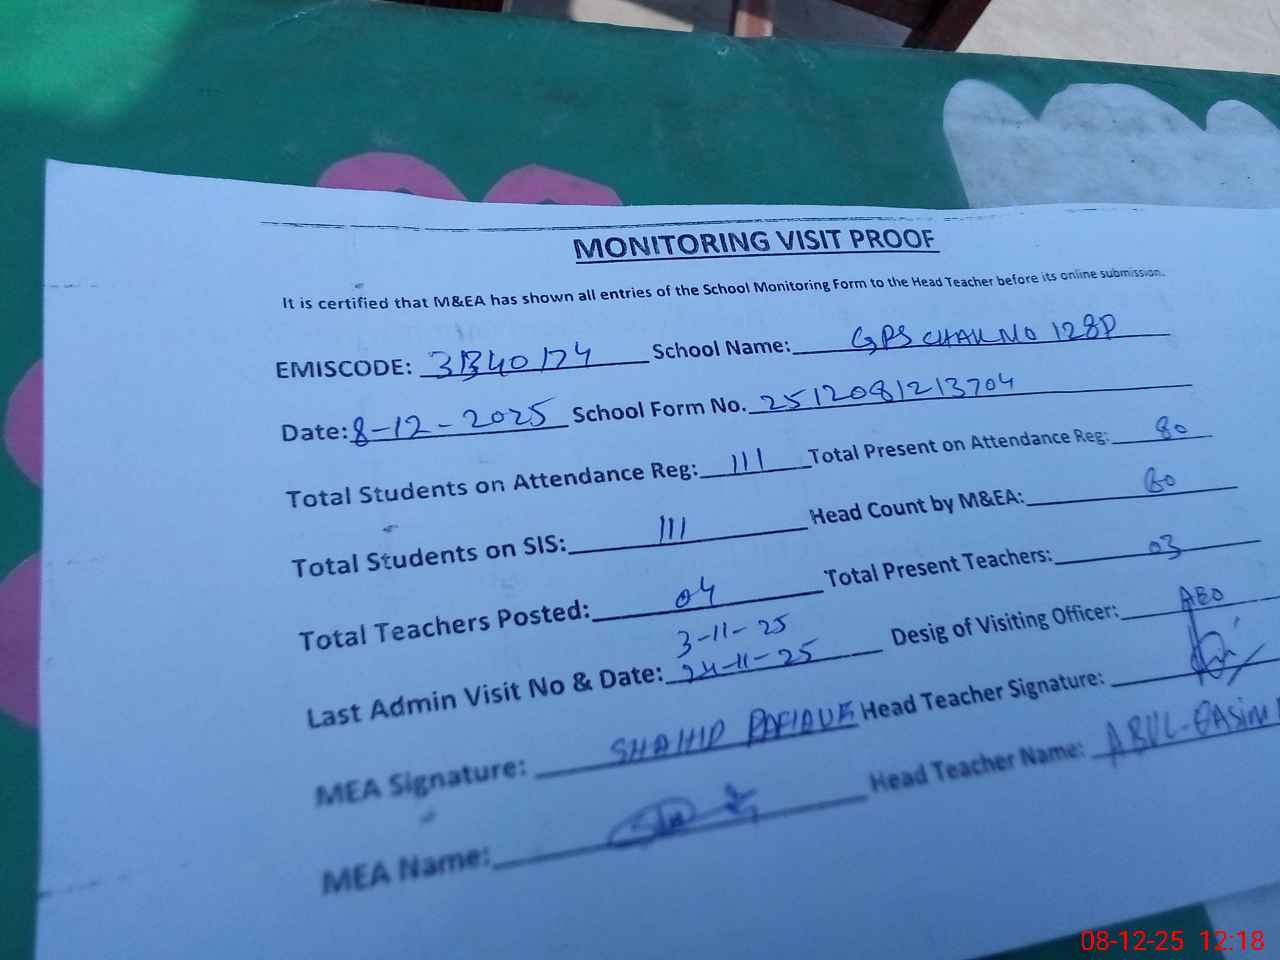 MONITORING VISIT PROOF
It is certified that M&EA has shown all entries of the School Monitoring Form to the Head Teacher before its online submission.
EMISCODE: 31340174 School Name: GPS CHAK NO 128P
Date: 8-12-2025 School Form No. 251208121213704
Total Students on Attendance Reg: 111 Total Present on Attendance Reg: 80
Total Students on SIS: 111 Head Count by M&EA: 80
Total Teachers Posted: 04 Total Present Teachers: 03
3-11-25
Last Admin Visit No & Date: 24-11-25 Desig of Visiting Officer: AEO
MEA Signature: SHAHID RAFIQUE Head Teacher Signature:
MEA Name: Head Teacher Name: ABUL-QASIM
08-12-25 12:18